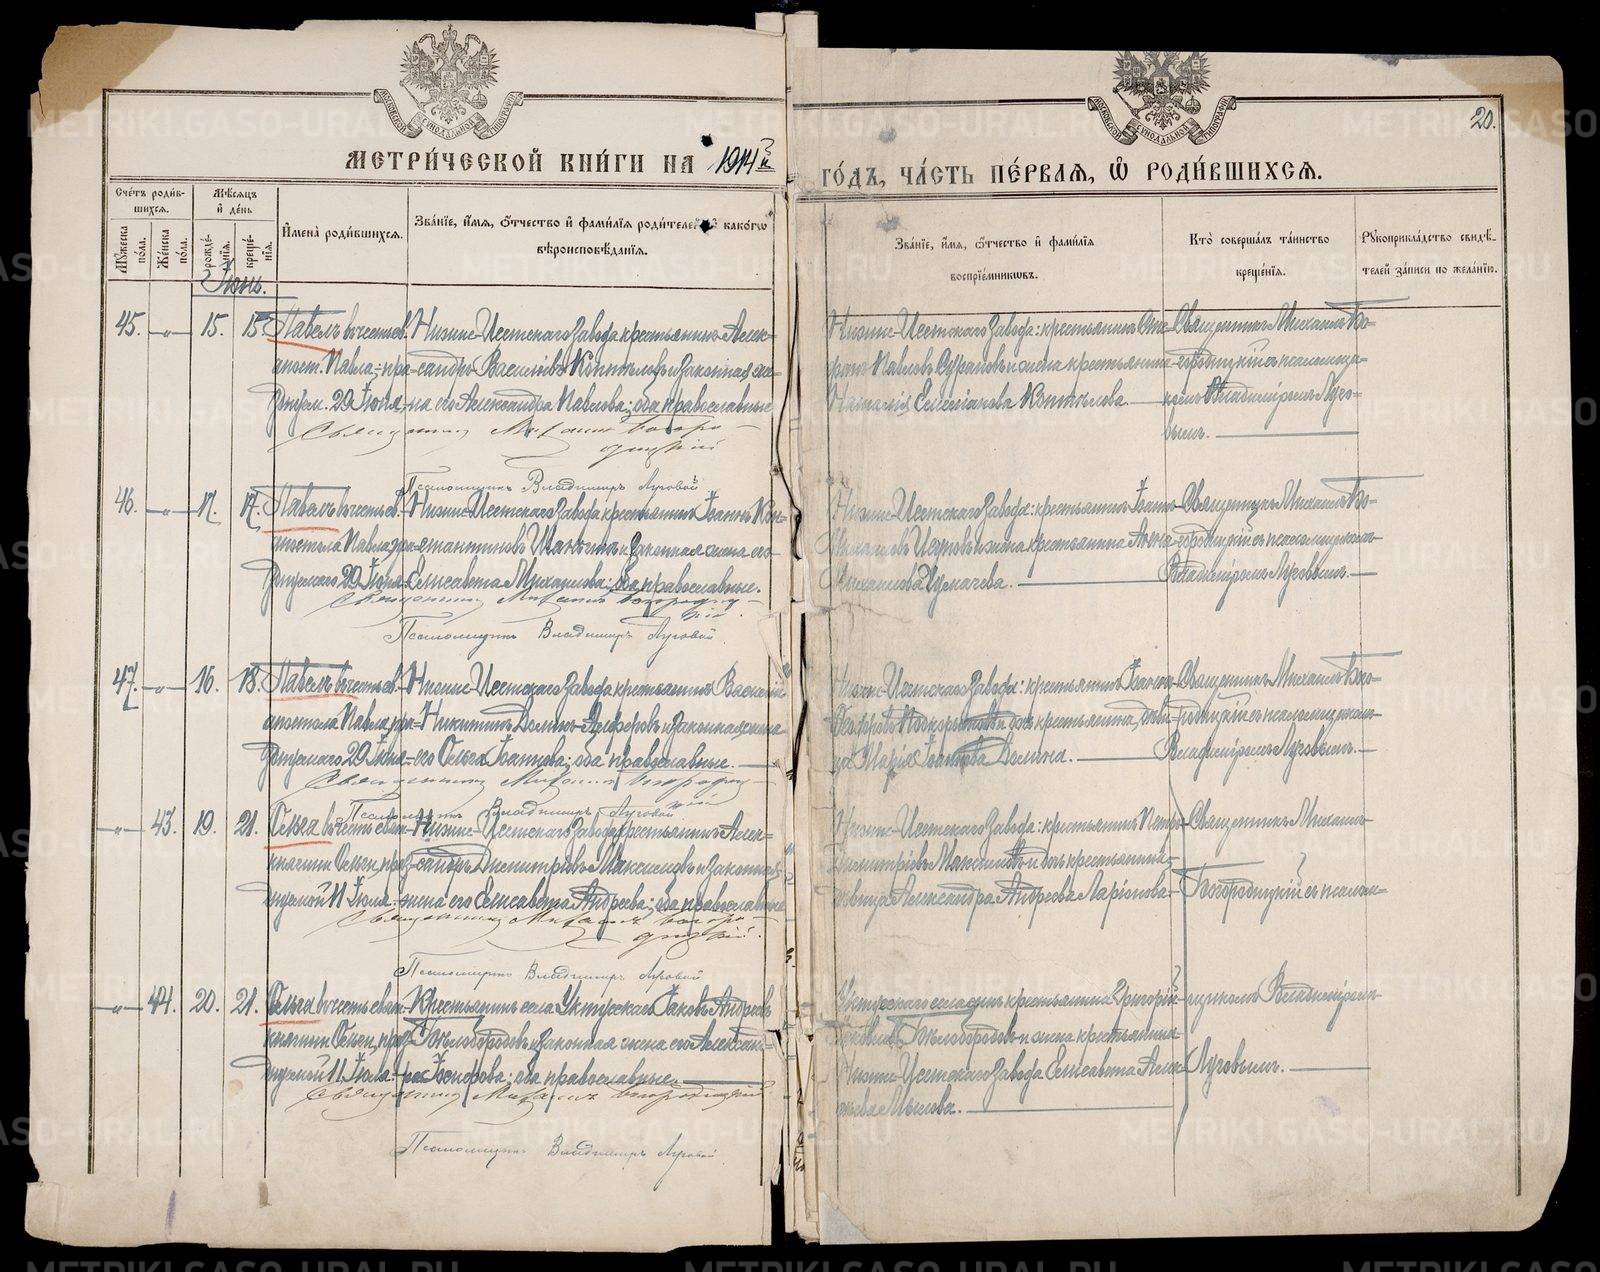 МЕТРИ́ЧЕСКОЙ КНИ́ГИ НА 1914й ГО́ДЪ, ЧА́СТЬ ПЕ́РВАЯ, Ѡ РОДИ́ВШИХСЯ.
20.
Сче́тъ роди́в-
шихся.
Мѣ́сяцъ
и́ де́нь
Му́жеска по́ла.
Же́нска по́ла.
рожде́нія.
креще́нія.
И́мена̀ роди́вшихся.
Зва́нїе, и́мя, о́тчество и́ фами́лїя роди́телей и́ како́гѡ
вѣроисповѣ́данїя.
Зва́нїе, и́мя, о́тчество и́ фами́лїя
воспрїе́мникѡвъ.
Кто̀ соверша́лъ та́инство
креще́нїя.
Рꙋкоприкла́дство свидѣ́-
телей за́писи по жела́нїю.
Іюнь.
45. — " — 15. 15. Павелъ въ честь св.
апост. Павла, пра-
зднуем. 29 Іюня,
Нижне-Исетскаго Завода крестьянинъ Алек-
сандръ Васильевъ Коптѣловъ и законная же-
на его Александра Павлова; оба православные
Священникъ Михаилъ Богоро-
дицкій
Псаломщикъ Владимиръ Луговой
Нижне-Исетскаго Завода: крестьянинъ
Павловъ и жена крестьянина
Наталія Емельянова Коптѣлова.
Священникъ Михаилъ Бо-
городицкій съ псаломщи-
комъ Владиміромъ Луго-
вымъ.
46. — " — 17. 17. Павелъ въ честь св.
апостола Павла, пра-
зднуемаго 29 Іюня
Нижне-Исетскаго Завода крестьянинъ Іоаннъ Кон-
стантиновъ и законная жена его
Елисавета Михаилова; оба православные.
Священникъ Михаилъ Богородиц-
кій.
Псаломщикъ Владимиръ Луговой
Нижне-Исетскаго Завода: крестьянинъ Іоаннъ
и жена крестьянина Анна
Михаилова Чумачева.
Священникъ Михаилъ Бо-
городицкій съ псаломщикомъ
Владиміромъ Луговымъ.
47. — " — 16. 18. Павелъ въ честь св.
апостола Павла, пра-
зднуемаго 29 Іюня
Нижне-Исетскаго Завода крестьянинъ Василій
Никитинъ Долинъ-Алферовъ и законная жена
его Ольга Іоаннова; оба православные.
Священникъ Михаилъ Богородиц-
кій
Псаломщикъ Владимиръ Луговой
Нижне-Исетскаго Завода: крестьянинъ Іоаннъ
и дочь крестьянина, дѣви-
ца Марія Іоаннова Долина.
Священникъ Михаилъ Бого-
родицкій съ псаломщикомъ
Владиміромъ Луговымъ.
— " — 43. 19. 21. Ольга въ честь свят.
княгини Ольги, праз-
днуемой 11 Іюля.
Нижне-Исетскаго Завода крестьянинъ Алек-
сандръ Димитріевъ Максимовъ и законная
жена его Елисавета Андреева; оба православные
Священникъ Михаилъ Богоро-
дицкій.
Псаломщикъ Владимиръ Луговой
Нижне-Исетскаго Завода: крестьянинъ Петръ
Димитріевъ Максимовъ и дочь крестьянина,
дѣвица Александра Андреева Ларіонова
Священникъ Михаилъ
Богородицкій съ псалом-
— " — 44. 20. 21. Ольга въ честь свят.
княгини Ольги, праз-
днуемой 11 Іюля.
Крестьянинъ села Уктусскаго Іаковъ Андреевъ
Бѣлобородовъ и законная жена его Александ-
ра; оба православные.
Священникъ Михаилъ Богородицкій
Псаломщикъ Владимиръ Луговой
Уктусскаго села: сынъ крестьянина Григорій
Іаковлевъ Бѣлобородовъ и жена крестьянина
Нижне-Исетскаго Завода Елисавета Алек-
сѣева Мылова.
щикомъ Владиміромъ
Луговымъ.